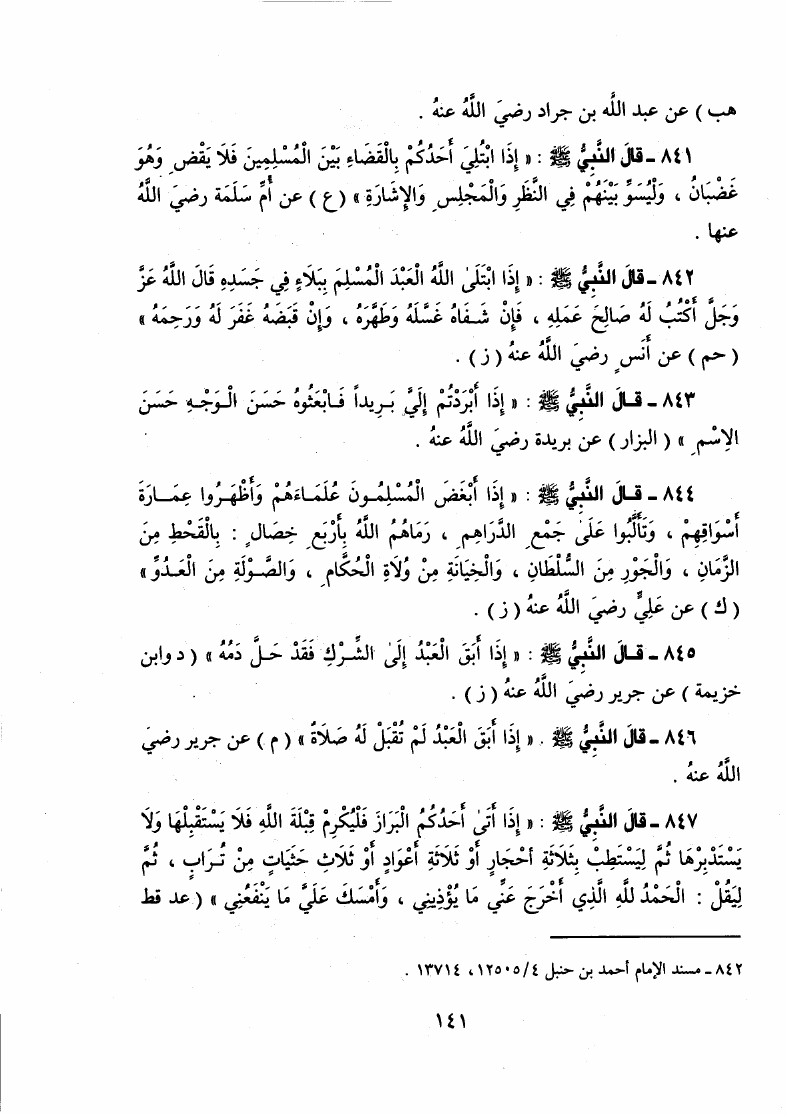 هب ) عن عبد اللَّه بن جراد رضيَ اللَّهُ عنهُ .
٨٤١ - قالَ النَّبِيُّ ﷺ : « إِذَا ابْتُلِيَ أَحَدُكُمْ بِالْقَضَاءِ بَيْنَ الْمُسْلِمِينَ فَلَا يَقْضِ وَهُوَ
غَضْبَانُ ، وَلْيُسَوِّ بَيْنَهُمْ فِي النَّظَرِ وَالْمَجْلِسِ وَالإِشَارَةِ » ( ع ) عن أُمِّ سَلَمَة رضيَ اللَّهُ
عنها .
٨٤٢ - قالَ النَّبِيُّ ﷺ : « إِذَا ابْتَلَىٰ اللَّهُ الْعَبْدَ الْمُسْلِمَ بِبَلَاءٍ فِي جَسَدِهِ قَالَ اللَّهُ عَزَّ
وَجَلَّ أَكْتُبُ لَهُ صَالِحَ عَمَلِهِ ، فَإِنْ شَفَاهُ غَسَلَهُ وَطَهَّرَهُ ، وَإِنْ قَبَضَهُ غَفَرَ لَهُ وَرَحِمَهُ »
( حم ) عن أَنَسٍ رضيَ اللَّهُ عنهُ ( ز ) .
٨٤٣ - قالَ النَّبِيُّ ﷺ : « إِذَا أَبْرَدْتُمْ إِلَيَّ بَرِيداً فَابْعَثُوهُ حَسَنَ الْوَجْهِ حَسَنَ
الاِسْمِ » ( البزار ) عن بريدة رضيَ اللَّهُ عنهُ .
٨٤٤ - قالَ النَّبِيُّ ﷺ : « إِذَا أَبْغَضَ الْمُسْلِمُونَ عُلَمَاءَهُمْ وَأَظْهَرُوا عِمَارَةَ
أَسْوَاقِهِمْ ، وَتَأَلَّبُوا عَلَىٰ جَمْعِ الدَّرَاهِمِ ، رَمَاهُمُ اللَّهُ بِأَرْبَعِ خِصَالٍ : بِالْقَحْطِ مِنَ
الزَّمَانِ ، وَالْجَوْرِ مِنَ السُّلْطَانِ ، وَالْخِيَانَةِ مِنْ وُلَاةِ الْحُكَّامِ ، وَالصَّوْلَةِ مِنَ الْعَدُوِّ »
( ك ) عن عَلِيٍّ رضيَ اللَّهُ عنهُ ( ز ) .
٨٤٥ - قالَ النَّبِيُّ ﷺ : « إِذَا أَبَقَ الْعَبْدُ إِلَىٰ الشِّرْكِ فَقَدْ حَلَّ دَمُهُ » ( د وابن
خزيمة ) عن جرير رضيَ اللَّهُ عنهُ ( ز ) .
٨٤٦ - قالَ النَّبِيُّ ﷺ . « إِذَا أَبَقَ الْعَبْدُ لَمْ تُقْبَلْ لَهُ صَلَاةٌ » ( م ) عن جرير رضيَ
اللَّهُ عنهُ .
٨٤٧ - قالَ النَّبِيُّ ﷺ : « إِذَا أَتَىٰ أَحَدُكُمُ الْبَرَازَ فَلْيُكْرِمْ قِبْلَةَ اللَّهِ فَلَا يَسْتَقْبِلْهَا وَلَا
يَسْتَدْبِرْهَا ثُمَّ لِيَسْتَطِبْ بِثَلَاثَةِ أَحْجَارٍ أَوْ ثَلَاثَةِ أَعْوَادٍ أَوْ ثَلَاثِ حَثَيَاتٍ مِنْ تُرَابٍ ، ثُمَّ
لِيَقُلْ : الْحَمْدُ للَّهِ الَّذِي أَخْرَجَ عَنِّي مَا يُؤْذِينِي ، وَأَمْسَكَ عَلَيَّ مَا يَنْفَعُنِي » ( عد قط
٨٤٢ - مسند الإمام أحمد بن حنبل ٤/١٢٥٠٥ ، ١٣٧١٤ .
١٤١